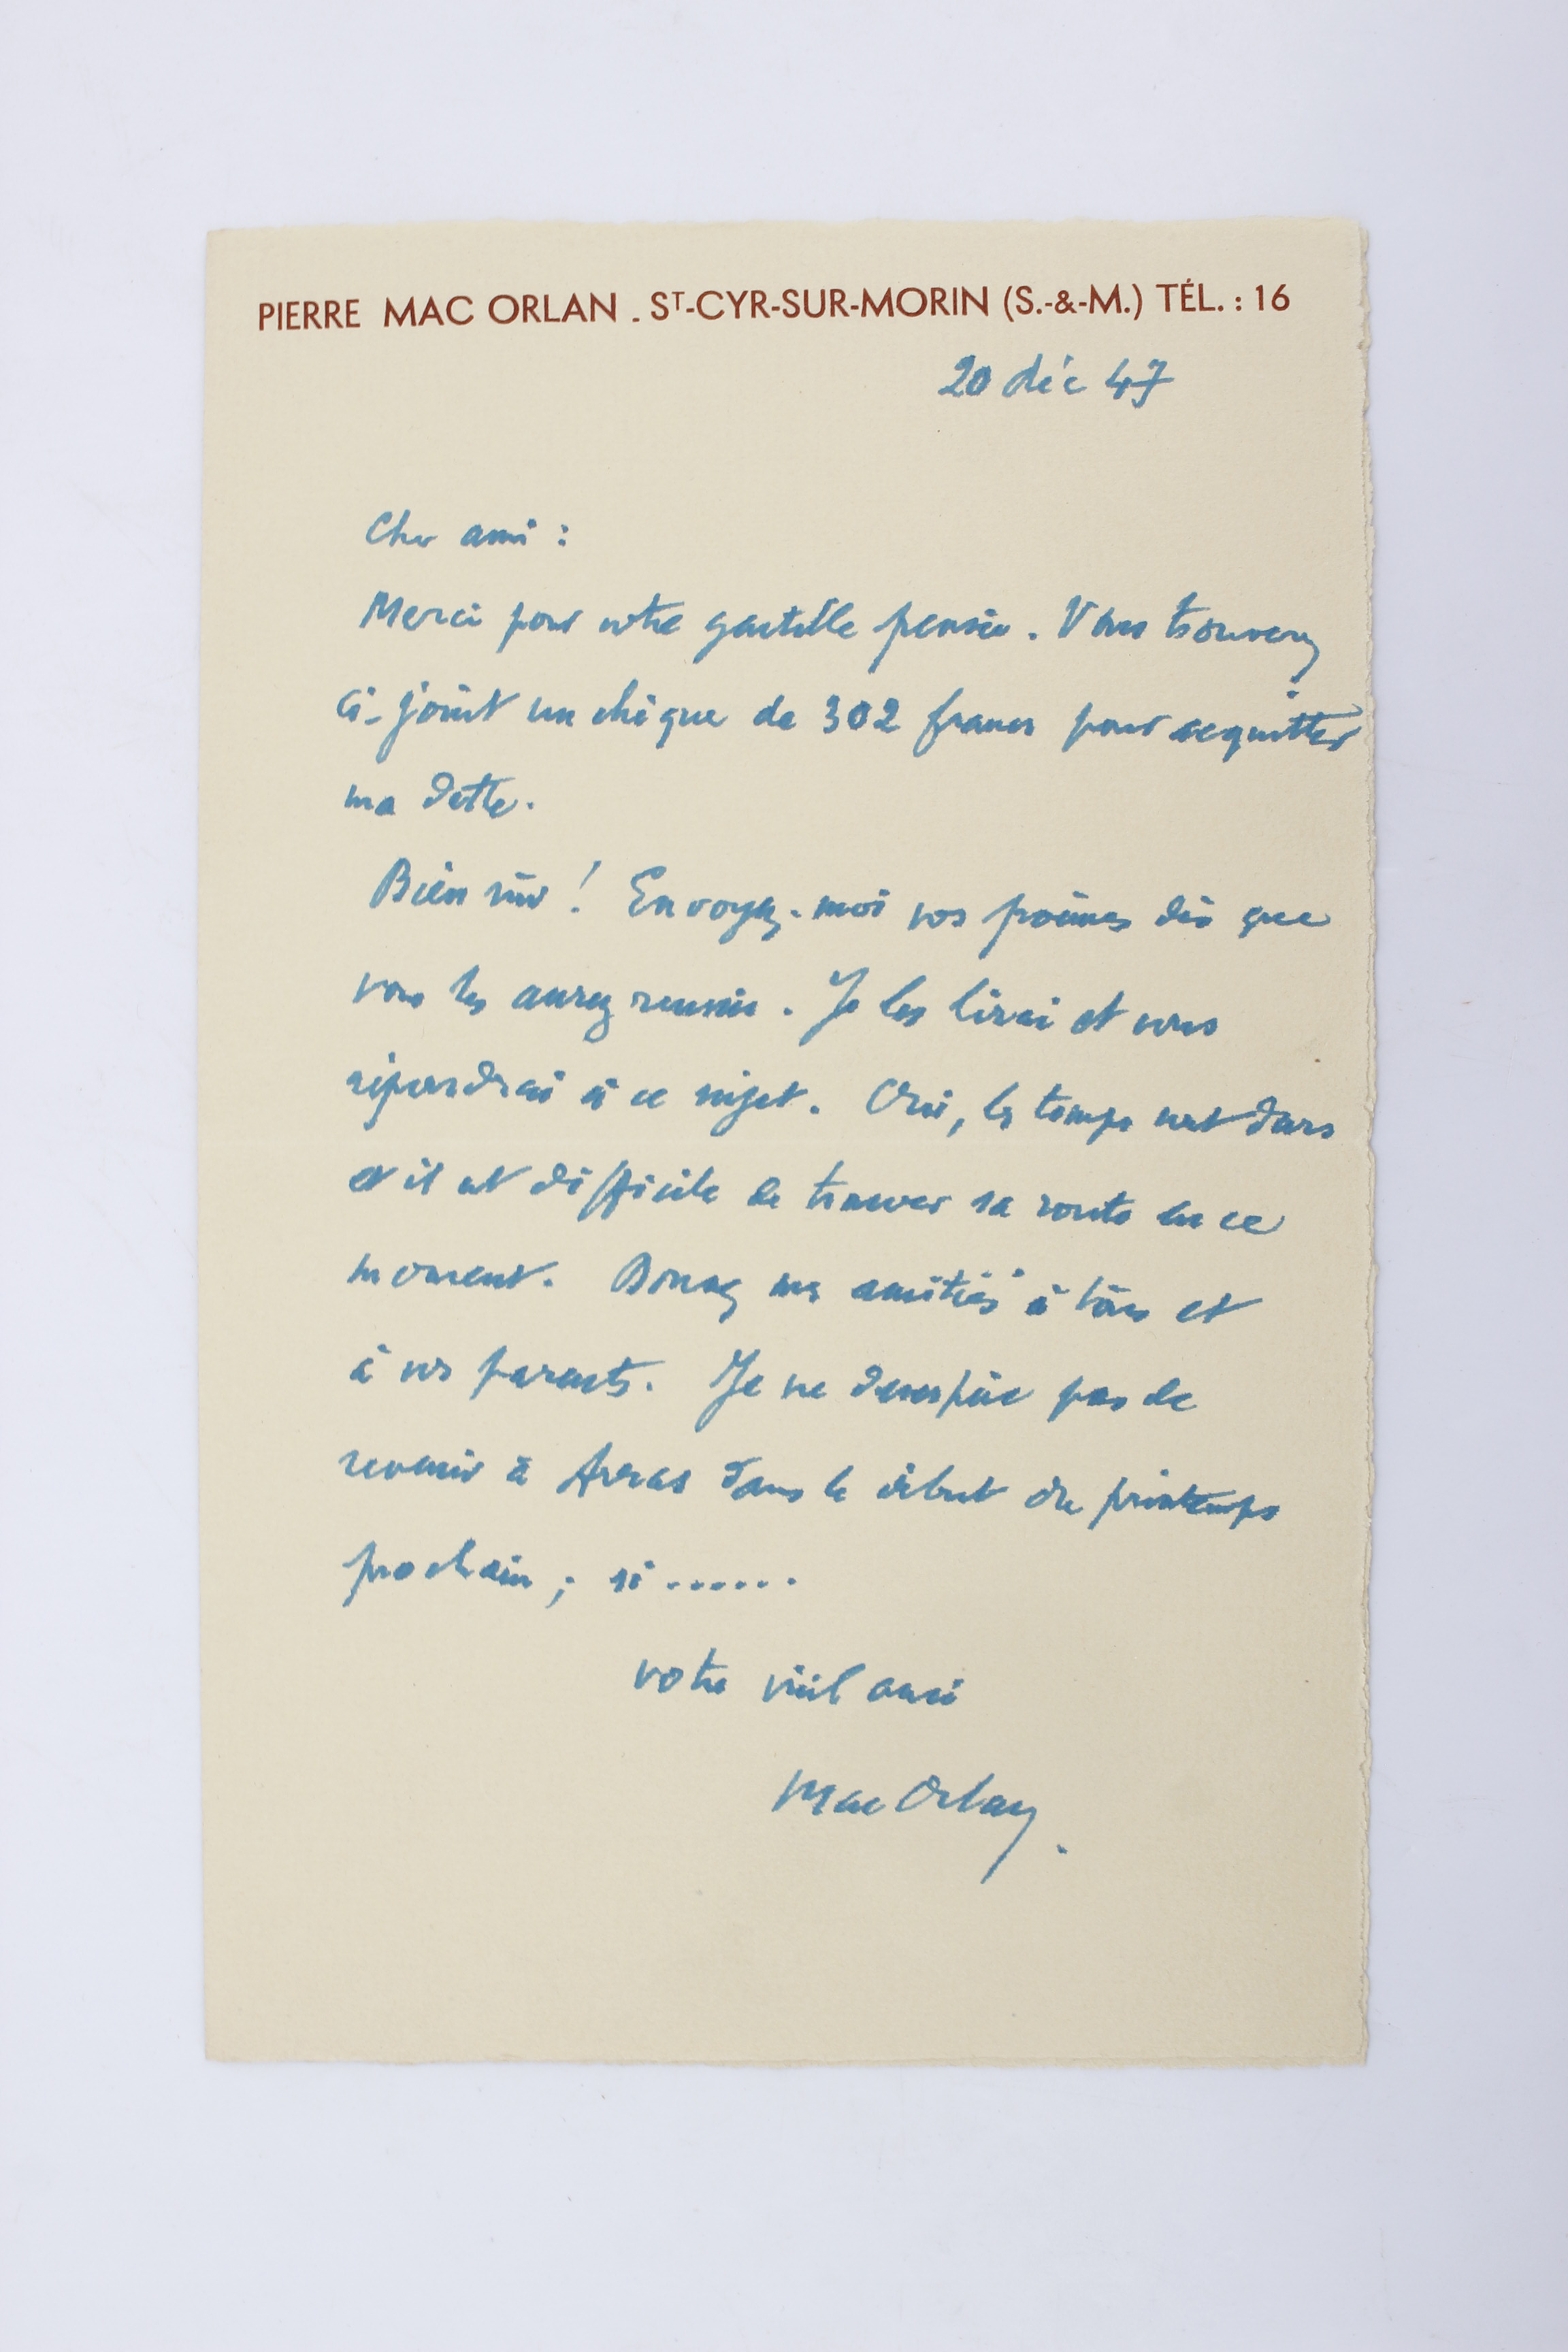 PIERRE MAC ORLAN . ST-CYR-SUR-MORIN (S.-&-M.) TÉL. : 16
20 déc 47
Cher ami :
Merci pour votre gentille pensée. Vous trouverez
ci-joint un chèque de 302 francs pour acquitter
ma dette.
Bien sûr ! Envoyez-moi vos poèmes dès que
vous les aurez reunis. Je les lirai et vous
répondrai à ce sujet. Oui, les temps sont durs
et il est difficile de trouver sa route en ce
moment. Donnez mes amitiés à tous et
à vos parents. Je ne desespère pas de
revenir à Arras dans le début du printemps
prochain ; si ......
votre vieil ami
Mac Orlan.